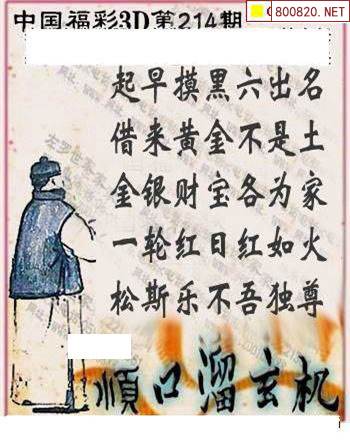 中国福彩3D第214期
800820.NET
起早摸黑六出名
借来黄金不是土
金银财宝各为家
一轮红日红如火
松斯乐不吾独尊
順口溜玄机